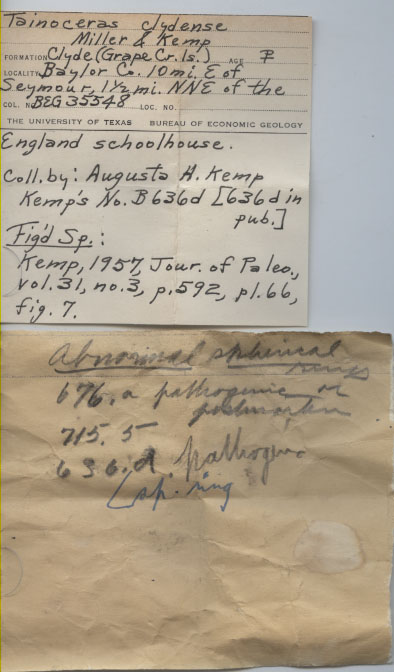 Tainoceras clydense
Miller & Kemp
FORMATION Clyde (Grape Cr. ls.) AGE P
LOCALITY Baylor Co. 10 mi. E of
Seymour, 1½ mi. NNE of the
COL. NO. BEG 35548 LOC. NO.
THE UNIVERSITY OF TEXAS BUREAU OF ECONOMIC GEOLOGY
England schoolhouse.
Coll. by: Augusta H. Kemp
Kemp's No. B636d [636d in
pub.]
Fig'd Sp.:
Kemp, 1957, Jour. of Paleo.,
vol. 31, no. 3, p. 592, pl. 66,
fig. 7.
Abnormal spherical
rings
676. a pathogenic or
postmortem
715. 5
636. d. pathogenic
(sp. ring